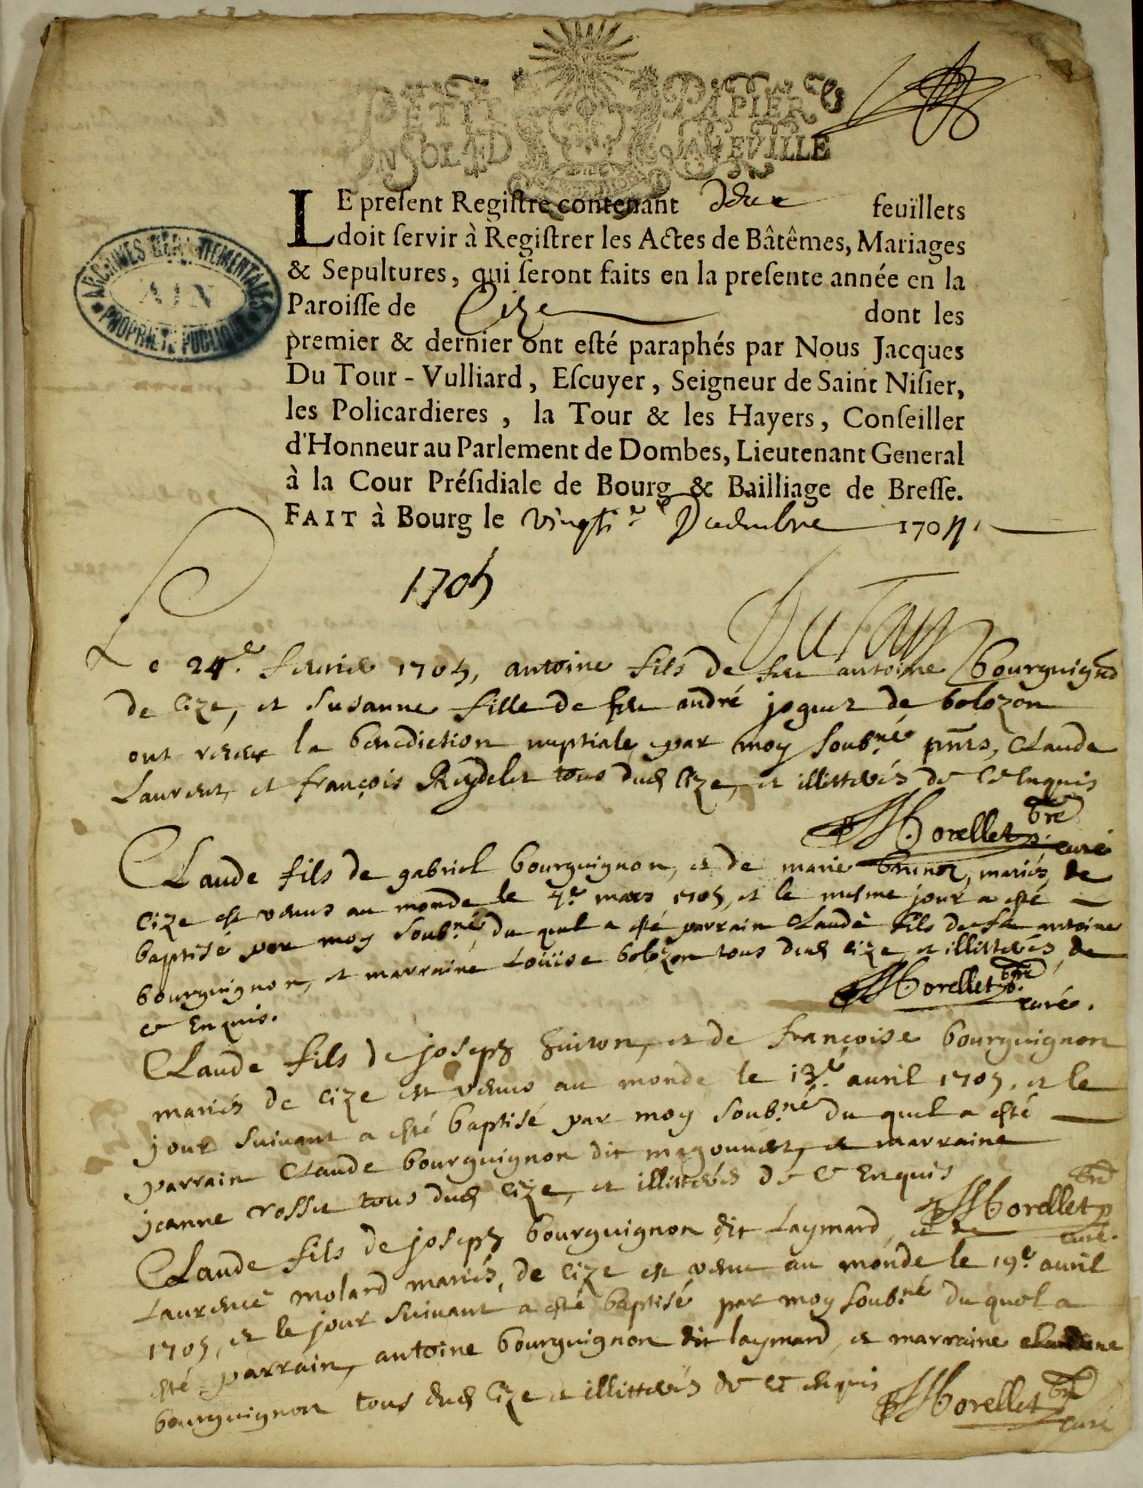 PETIT PAPIER
UN SOL 4D LA FEVILLE
LE present Registre contenant deux feuillets
doit servir à Registrer les Actes de Bâtêmes, Mariages
& Sepultures, qui seront faits en la presente année en la
Paroisse de Cize dont les
premier & dernier ont esté paraphés par Nous Jacques
Du Tour - Vulliard, Escuyer, Seigneur de Saint Nisier,
les Policardieres, la Tour & les Hayers, Conseiller
d'Honneur au Parlement de Dombes, Lieutenant General
à la Cour Présidiale de Bourg & Bailliage de Bresse.
FAIT à Bourg le vingt.e Decembre 1704.
ARCHIVES DÉPARTEMENTALES
AIN
PROPRIÉTÉ PUBLIQUE
1705
DuTour
Le 24.e fevrier 1705, antoine fils de feu antoine bourguignon
de Cize, et Susanne fille de feu andré joguet de bolozon
ont receu la benediction nuptiale par moy soub.né pnts, Claude
Laurent, et françois Reydelet tous dud Cize, et illitterés de ce Enquis
Morellet pbre curé
Claude fils de gabriel bourguignon, et de marie brunet, mariés de
Cize est venus au monde le 7.e mars 1705, et le mesme jour a esté
baptisé par moy soub.né, du quel a esté parrain Claude fils de feu antoine
bourguignon, et marraine Loüise bolozon tous dud Cize, et illitterés de
ce Enquis.
Morellet pbre curé.
Claude fils de joseph huiton, et de françoise bourguignon
mariés de Cize est venus au monde le 13.e avril 1705, et le
jour suivant a esté baptisé par moy soub.né du quel a esté
parrain Claude bourguignon dit et marraine
jeanne rosset tous dud Cize, et illitterés de ce Enquis
Morellet pbre curé.
Claude fils de joseph bourguignon dit Laymard, et de
Laurence molard mariés, de Cize est venu au monde le 19.e avril
1705, et le jour suivant a esté baptisé par moy soub.né du quel a
esté parrain, antoine bourguignon dit laymard, et marraine claudine
bourguignon tous dud Cize et illitterés de ce enquis
Morellet pbre curé